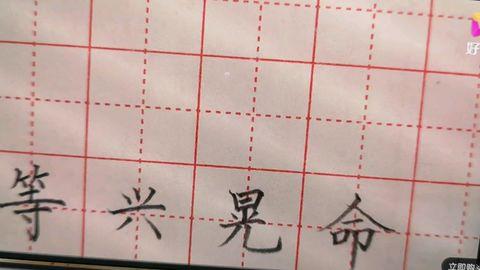 好
等兴晃命
立即购